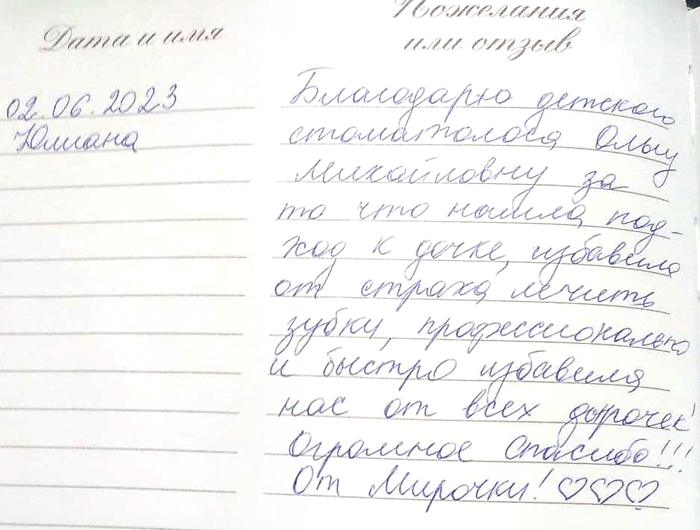 Дата и имя
Пожелания
или отзыв
02.06.2023
Юлиана
Благодарю детского
стоматолога Ольгу
Михайловну за
то что нашла под-
ход к дочке, избавила
от страха лечить
зубки, профессионально
и быстро избавила
нас от всех дырочек!
Огромное спасибо!!!
От Мирочки! ♡♡♡